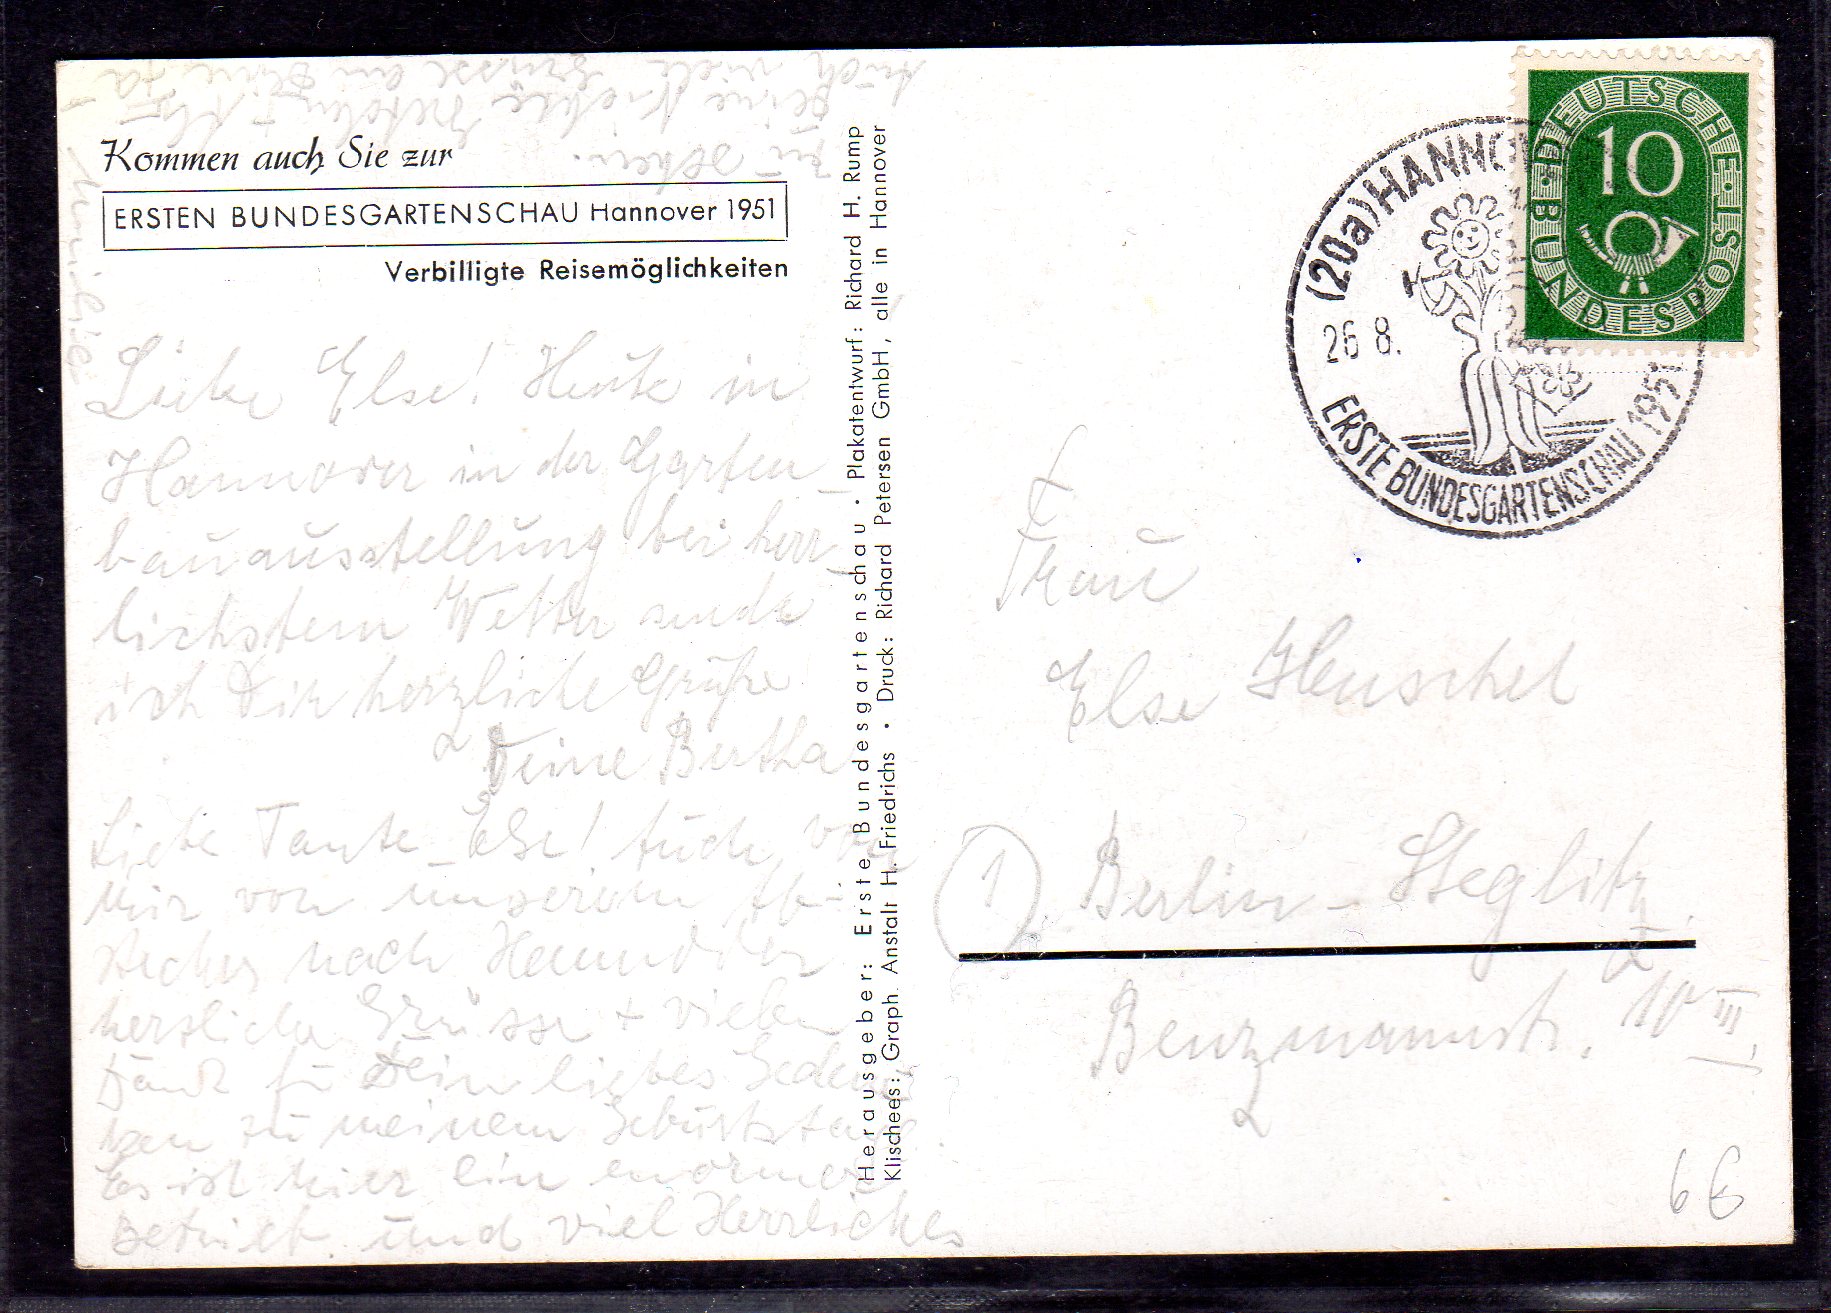 Kommen auch Sie zur
ERSTEN BUNDESGARTENSCHAU Hannover 1951
Verbilligte Reisemöglichkeiten
Liebe Else! Heute in
Hannover in der Garten-
bauausstellung bei herr-
lichstem Wetter sende
ich Dir herzliche Grüße
Deine Bertha
Liebe Tante Else! Auch von
mir von unserem Ab-
stecher nach Hannover
herzliche Grüsse + vielen
Dank für Dein liebes Geden-
ken zu meinem Geburtstage.
Es ist hier ein enormer
Betrieb und viel Herrliches
zu sehen.
Auch viele Grüsse an Deine
Herausgeber: Erste Bundesgartenschau · Plakatentwurf: Richard H. Rump
Klischees: Graph. Anstalt H. Friedrichs · Druck: Richard Petersen GmbH, alle in Hannover
DEUTSCHE BUNDESPOST
10
(20a) HANNO
26 8.
ERSTE BUNDESGARTENSCHAU 1951
Frau
Else Henschel
1 Berlin-Steglitz
Benzmannstr. 10 III
6€